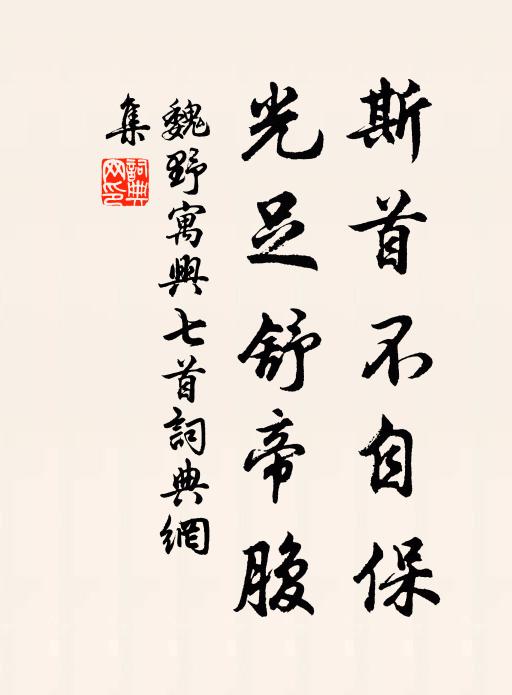 斯首不自保
光足舒帝腹
魏野寓興七首詞典網
集
詞典網印